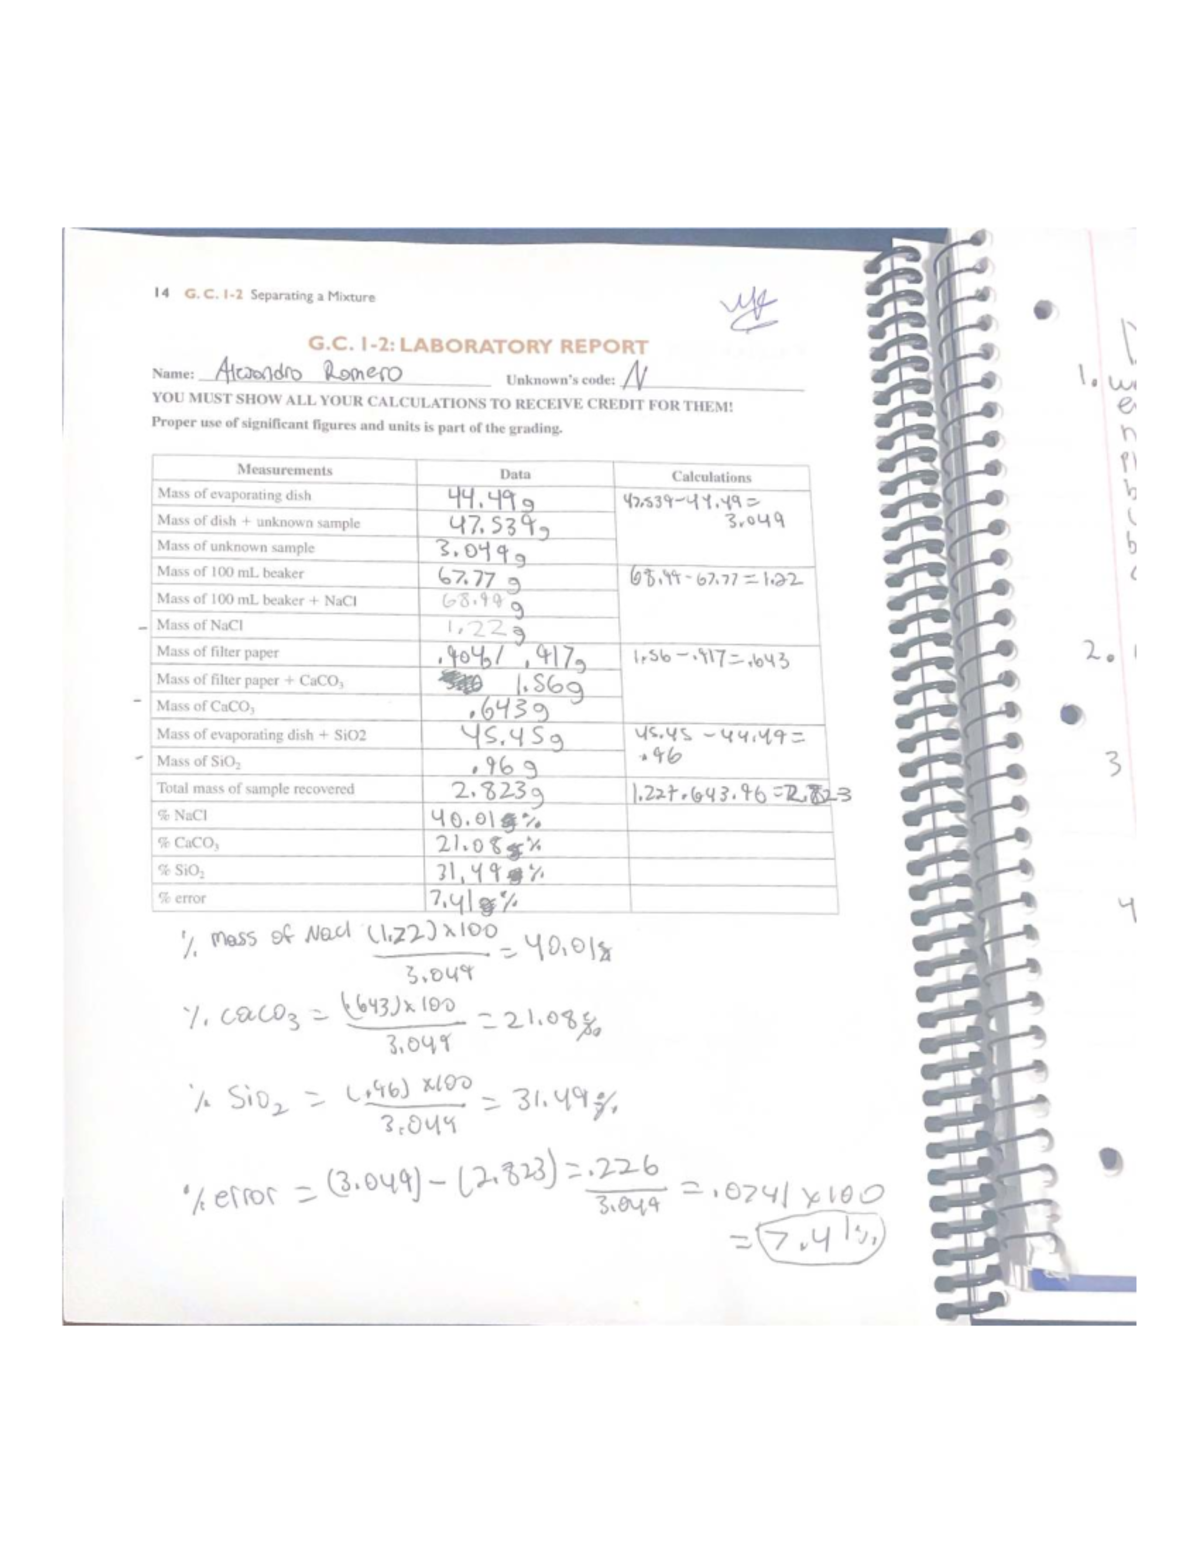 14 G. C. 1-2 Separating a Mixture
G.C. 1-2: LABORATORY REPORT
Name: Alejandro Romero Unknown's code: N
YOU MUST SHOW ALL YOUR CALCULATIONS TO RECEIVE CREDIT FOR THEM!
Proper use of significant figures and units is part of the grading.
Measurements Data Calculations
Mass of evaporating dish 44.49 g 47.539-44.49=
Mass of dish + unknown sample 47.539g 3.049
Mass of unknown sample 3.049g
Mass of 100 mL beaker 67.77 g 68.99-67.77=1.22
Mass of 100 mL beaker + NaCl 68.99 g
- Mass of NaCl 1.22g
Mass of filter paper .904g/ .917g 1.56-.917=.643
Mass of filter paper + CaCO3 1.56g
- Mass of CaCO3 .643g
Mass of evaporating dish + SiO2 45.45g 45.45 - 44.49=
- Mass of SiO2 .96 g .96
Total mass of sample recovered 2.823g 1.22+.643.96=2.823
% NaCl 40.01%
% CaCO3 21.08%
% SiO2 31.49%
% error 7.41%
% mass of Nacl (1.22)x100
= 40.01%
3.049
% caco3 = (.643)x100
= 21.08%
3.049
% SiO2 = (.96) x100
= 31.49%
3.049
% error = (3.049) - (2.823) = .226
3.049
= .0741 x100
= 7.41%
1.
2.
3
4